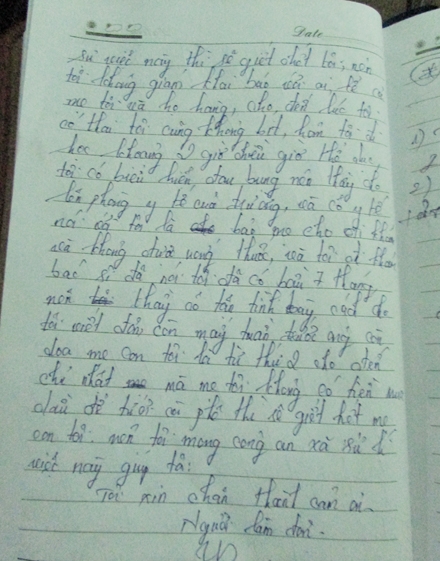 Date
sự việc này thì sẽ giết chết tôi, nên
tôi không giám khai báo với ai, kể cả
mẹ tôi và họ hàng, cho đến lúc tôi
có thai tôi cũng không bít, hôm tôi đi
học khoảng 2 giờ chiều giờ thể dục,
tôi có biểu hiện đau bụng nên thầy cho
lên phòng y tế của trường, và cô y tế
nói và tôi là bảo mẹ cho đi khám
và không đưa uống thuốc, và tôi đi khám
bác sĩ đã nói tôi đã có bầu 7 tháng
nên thầy cô tận tình bày cách cho
tôi viết đơn, còn mấy tuần trước ông còn
dọa mẹ con tôi là từ thứ 2 cho đến
chủ nhật mà mẹ tôi không có tiền mua
dầu để tưới cà phê thì sẽ giết hết mẹ
con tôi. nên tôi mong công an xã sử lí
việc này giúp tôi:
Tôi xin chân thành cảm ơi.
Người làm đơn.